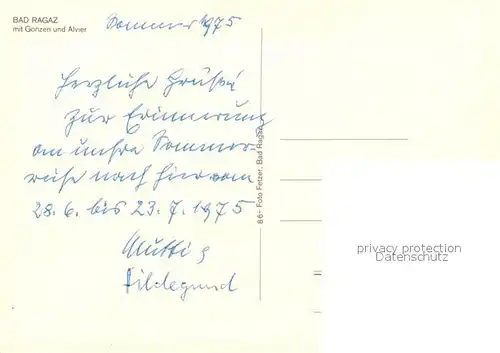 BAD RAGAZ
mit Gonzen und Alvier
Sommer 1975
Herzliche Grüße
zur Erinnerung
an unsre Sommer
reise nach hier vom
28.6. bis 23.7.1975
Mutti &
Hildegund
86- Foto Fetzer, Bad Ragaz
privacy protection
Datenschutz